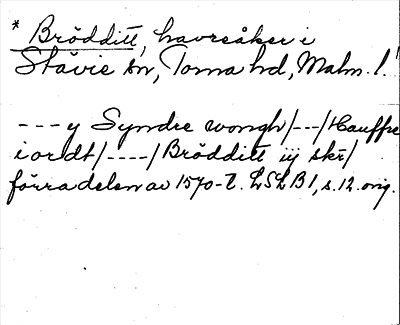 * Brödditt, havresåker i
Stävie sn, Torna hd, Malm. l.
---y Syndre wongh/--/Hauffre
iordt/----/Brödditt iij skr/
förra delen av 1570-t. LSLB1, s.12. orig.